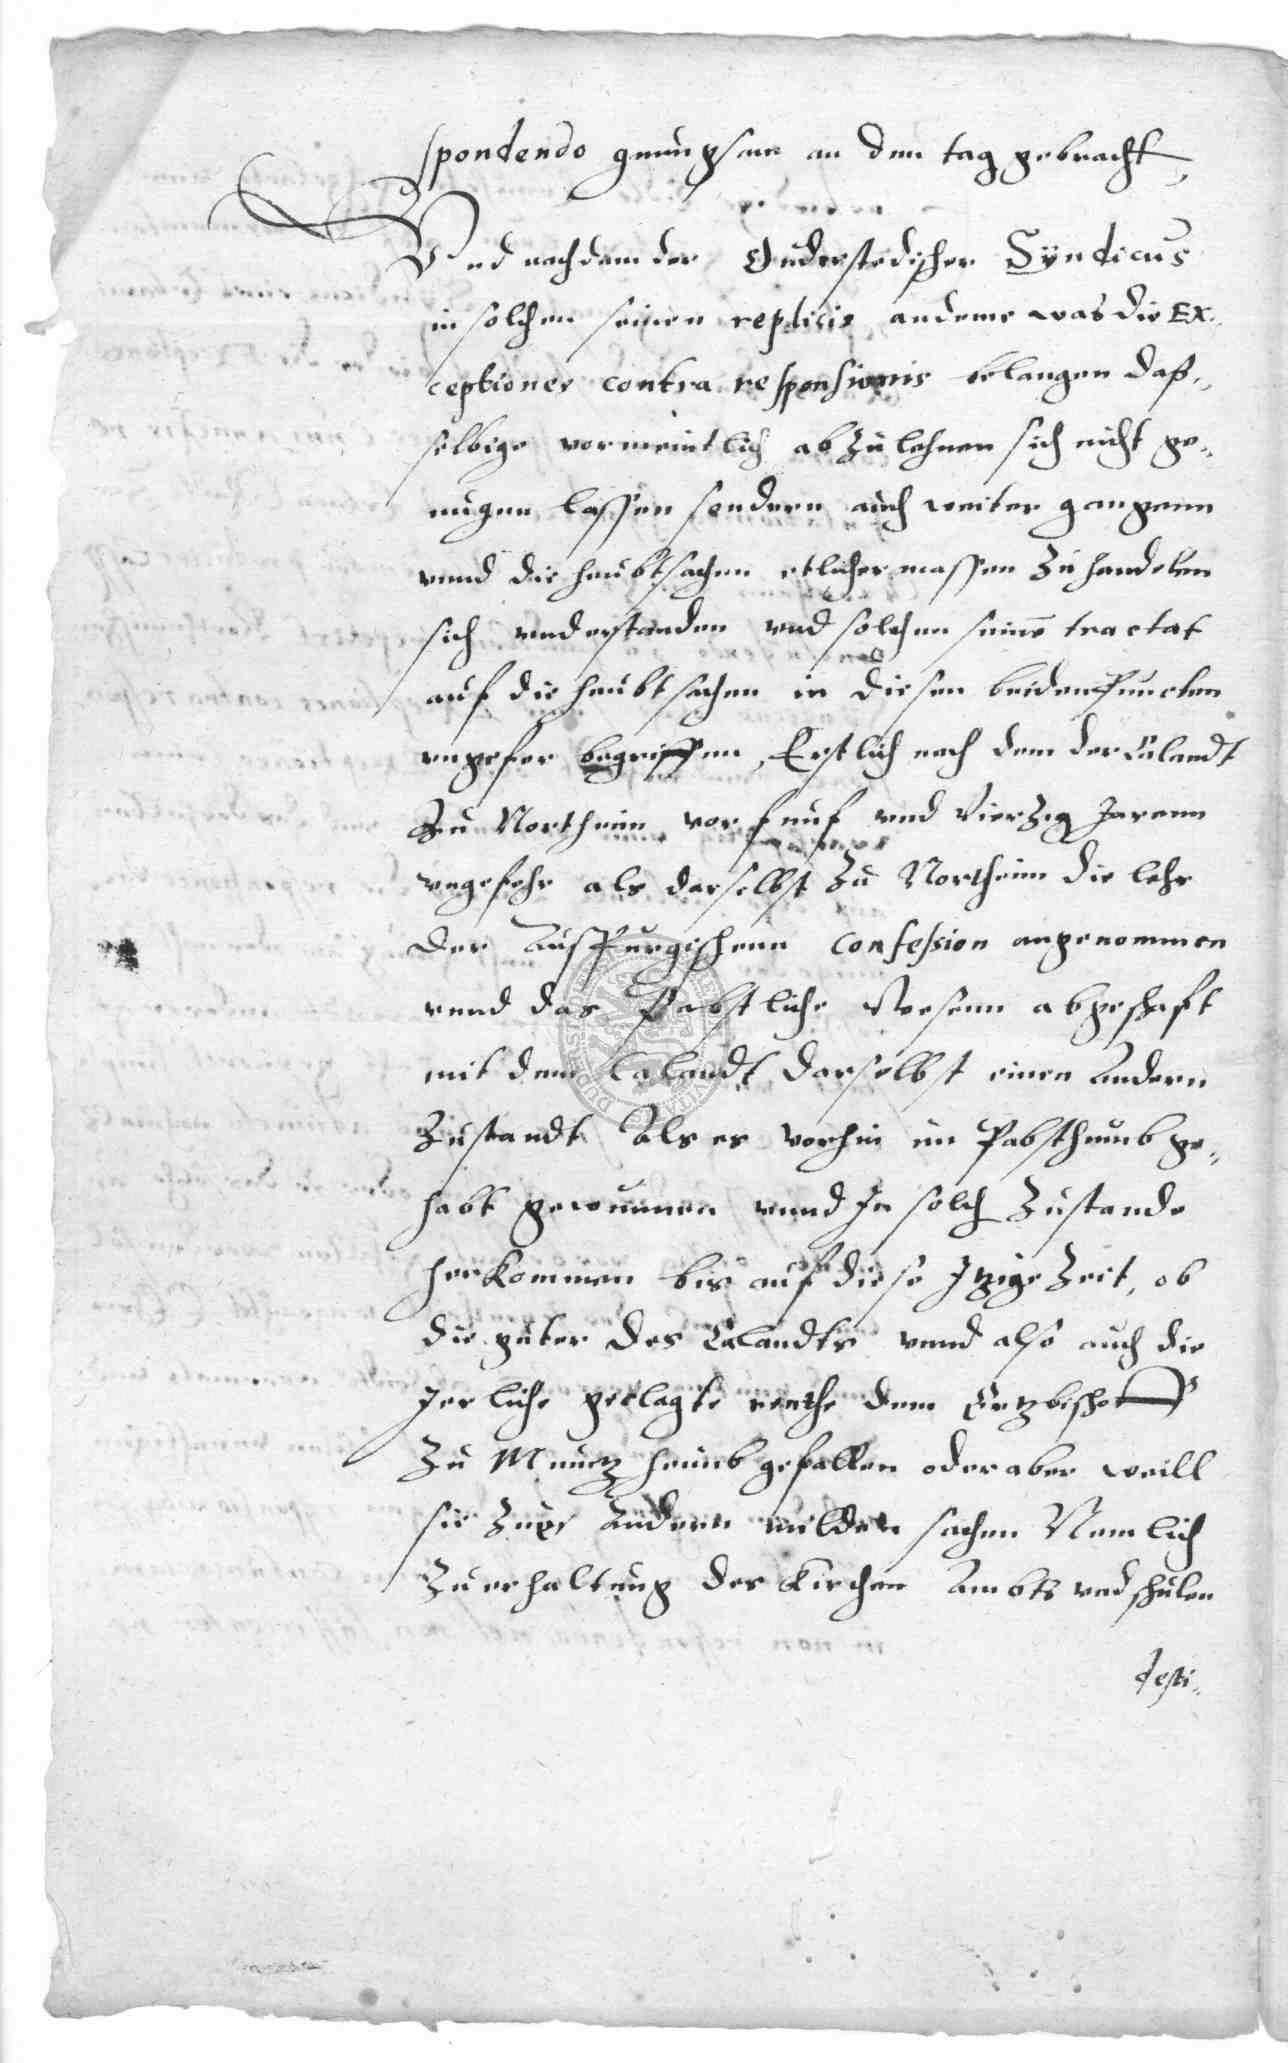 spondendo gnungsam an den tag gebracht,
Und nachdem der Duderstedischer Syndicus
in solchen seinen replicis an deme was die Ex-
ceptiones contra responsionis belangen daß-
selbige vormeintlich abzulehnen sich nicht ge-
nugen lassen sondern auch weiter gangenn
unnd die heubtsachen etlicher massen zu handelen
sich understanden und solchen seinen tractat
auf die heubtsachen in diesen beiden Puncten
ungefer begriffen, Erstlich nach dem der Calandt
Zu Northeim vor funf und Vierzig Jarenn
ungefehr als darselbst zu Northeim die lehr
der Auspurgischenn Confession angenommen
unnd das Pabstliche Wesenn abgeschaft
mit dem Calandt darselbst einen Andern
Zustandt Als er vorhin im Pabsthumb ge-
habt gewunnen unnd In solch Zustande
herkommen bis auf diese Itzige Zeit, ob
die guter des Calandts unnd also auch die
Jerliche geclagte renthe dem Ertzbischoff
Zu Meintz heimb gefallen oder aber weill
sie Zu Andern milden sachen Nemlich
Zu erhaltung der Kirchen Ambts und schulen
desti-
DUDERSTADT